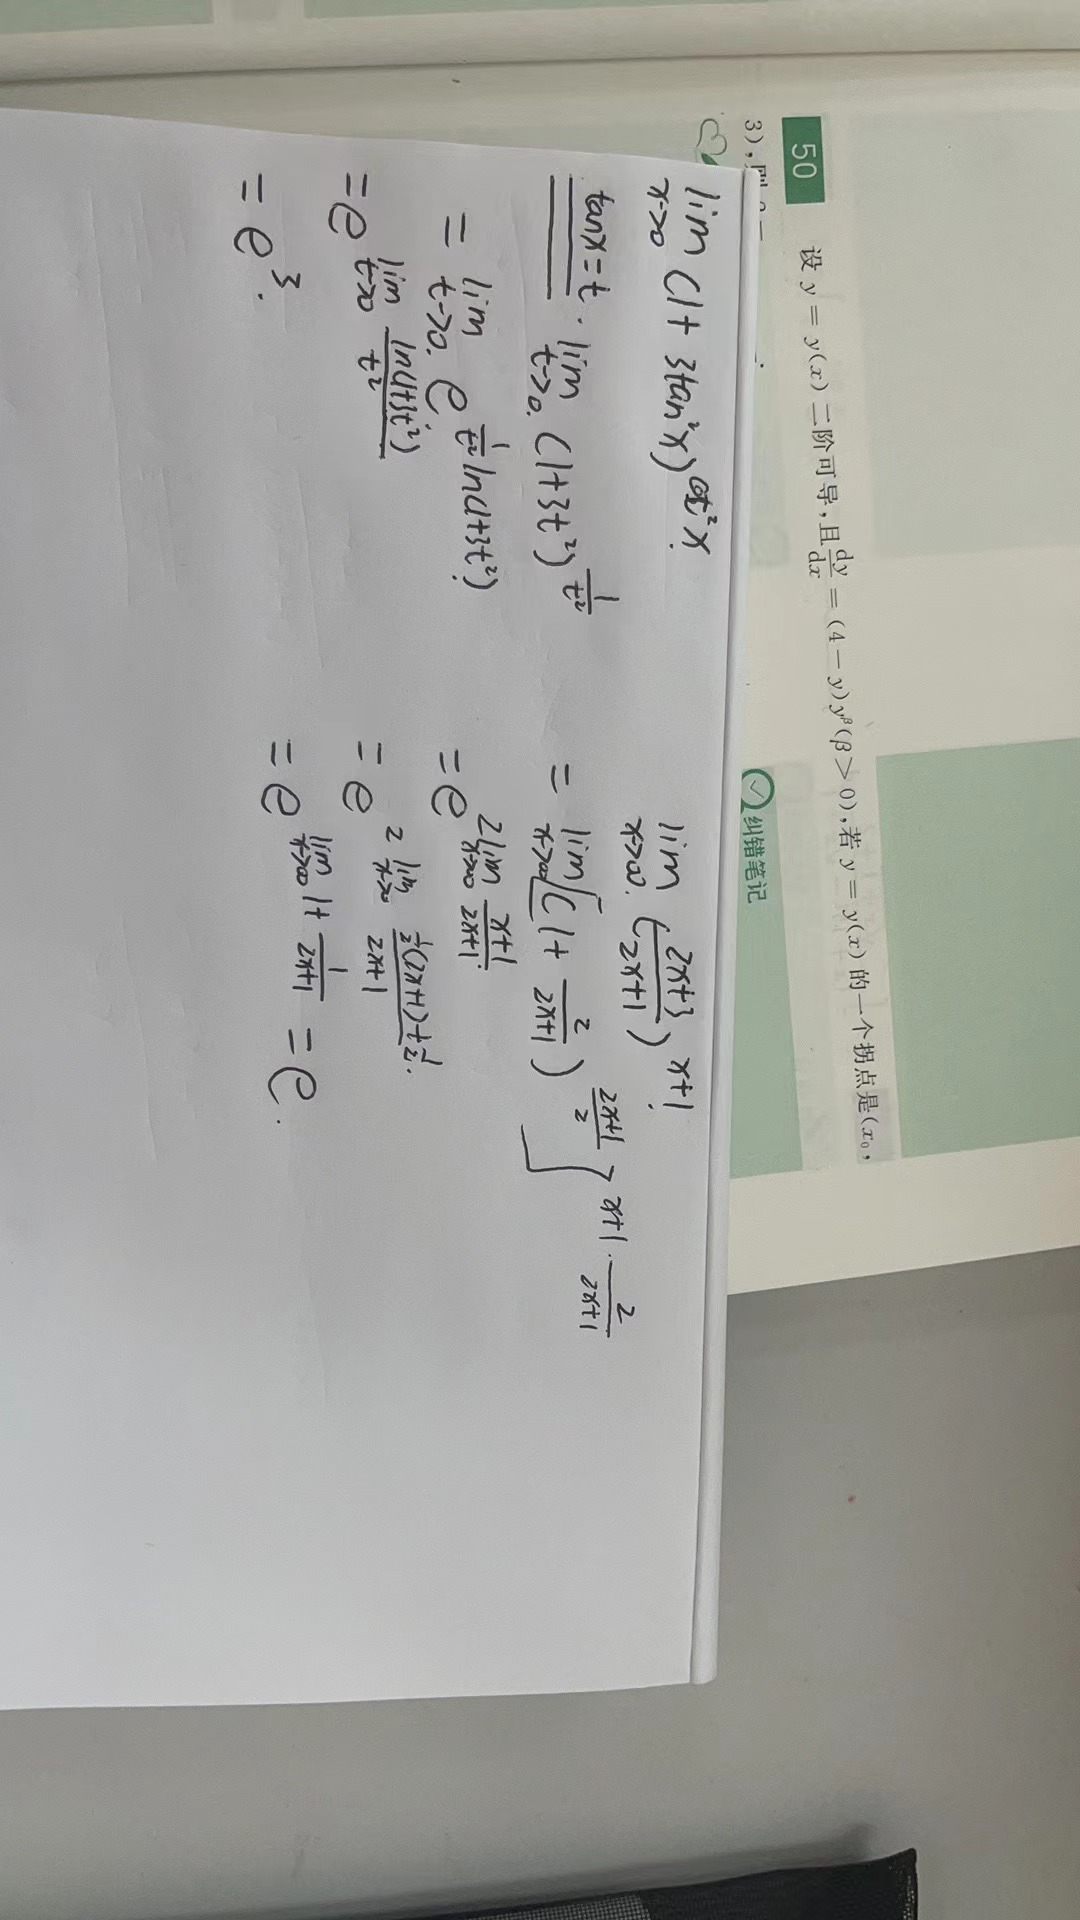 50 设 y = y(x) 二阶可导，且 dy/dx = (4 − y)y^β (β > 0)，若 y = y(x) 的一个拐点是(x₀,
3)，则
纠错笔记
lim x->0 (1 + 3tan²x)^cot²x.
tanx=t. lim t->0. (1+3t²)^(1/t²)
= lim t->0. e^(1/t² ln(1+3t²))
= e^(lim t->0 ln(1+3t²)/t²)
= e³.
lim x->∞. ((2x+3)/(2x+1))^(x+1).
= lim x->∞ [(1 + 2/(2x+1))^((2x+1)/2)]^(x+1 · 2/(2x+1))
= e^(2 lim x->∞ (x+1)/(2x+1).)
= e^(2 lim x->∞ (½(2x+1)+½)/(2x+1).)
= e^(lim x->∞ 1+ 1/(2x+1)) = e.